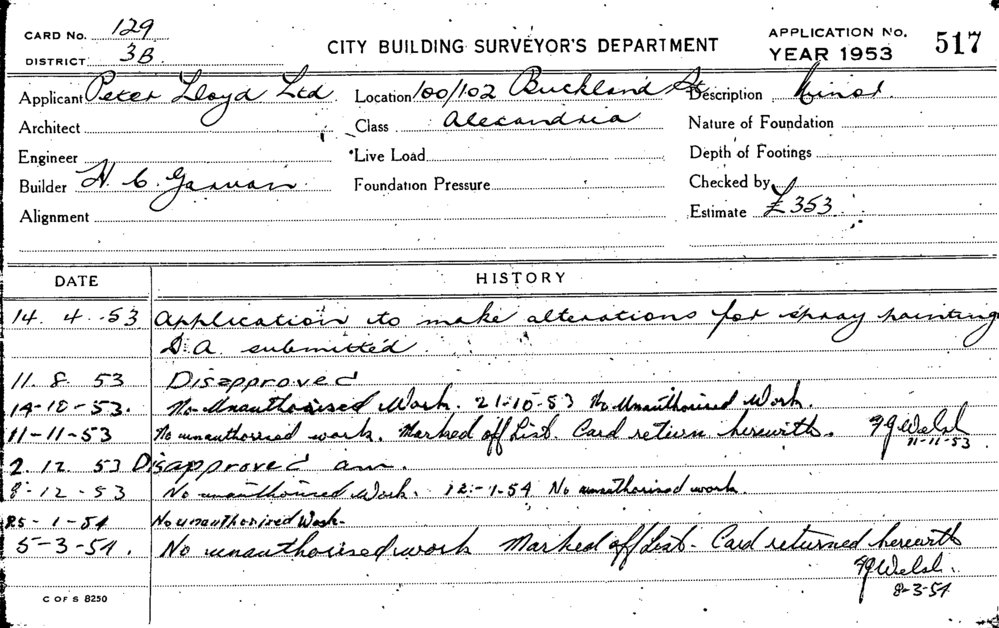 CARD No. 129
DISTRICT 3B
CITY BUILDING SURVEYOR'S DEPARTMENT
APPLICATION No. 517
YEAR 1953
Applicant Peter Lloyd Ltd Location 100/102 Buckland St. Description Minor
Architect Class Alexandria Nature of Foundation
Engineer Live Load Depth of Footings
Builder H. C. Garvan Foundation Pressure Checked by
Alignment Estimate £353
DATE HISTORY
14. 4. 53 Application to make alterations for spray painting
D.A. submitted
11. 8. 53 Disapproved
14-10-53. No Unauthorised Work. 21-10-53 No Unauthorised Work.
11-11-53 No unauthorised work. Marked off List. Card return herewith. Welsh
11-11-53
2. 12. 53 Disapproved am.
8-12-53 No unauthorised Work. 12-1-54 No unauthorised work.
25-1-54 No unauthorised Work.
5-3-54. No unauthorised work Marked off List. Card returned herewith
Welsh.
8-3-54
C OF S 8250